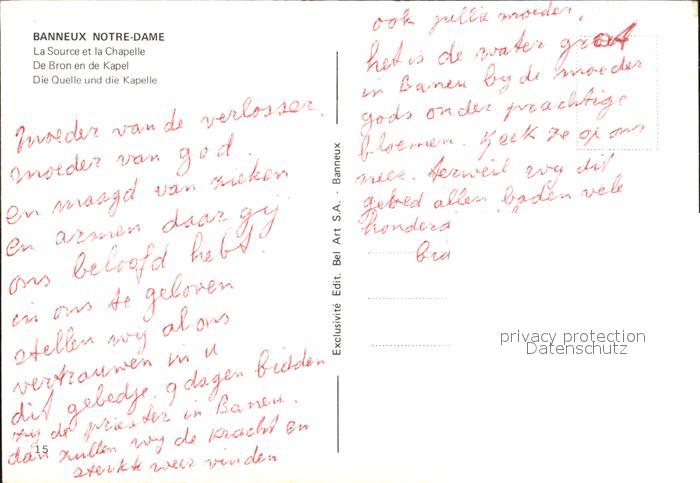 BANNEUX NOTRE-DAME
La Source et la Chapelle
De Bron en de Kapel
Die Quelle und die Kapelle
moeder van de verlosser.
moeder van god.
en maagd van zieken
en armen daar gij
ons beloofd hebt.
in ons te geloven
stellen wij al ons
vertrouwen in u
dit gebedje. 9 dagen bidden
zeg de priester in Baneu.
dan zullen wij de kracht en
sterkte weer vinden
15
Exclusivité Edit. Bel Art S.A. - Banneux
ook jullie moeder.
het is de water grot
in Baneu by de moeder
gods onder prachtige
bloemen. Keek ze op ons
neer. terweil wij dit
gebed allen baden vele
honderd
bid
privacy protection
Datenschutz